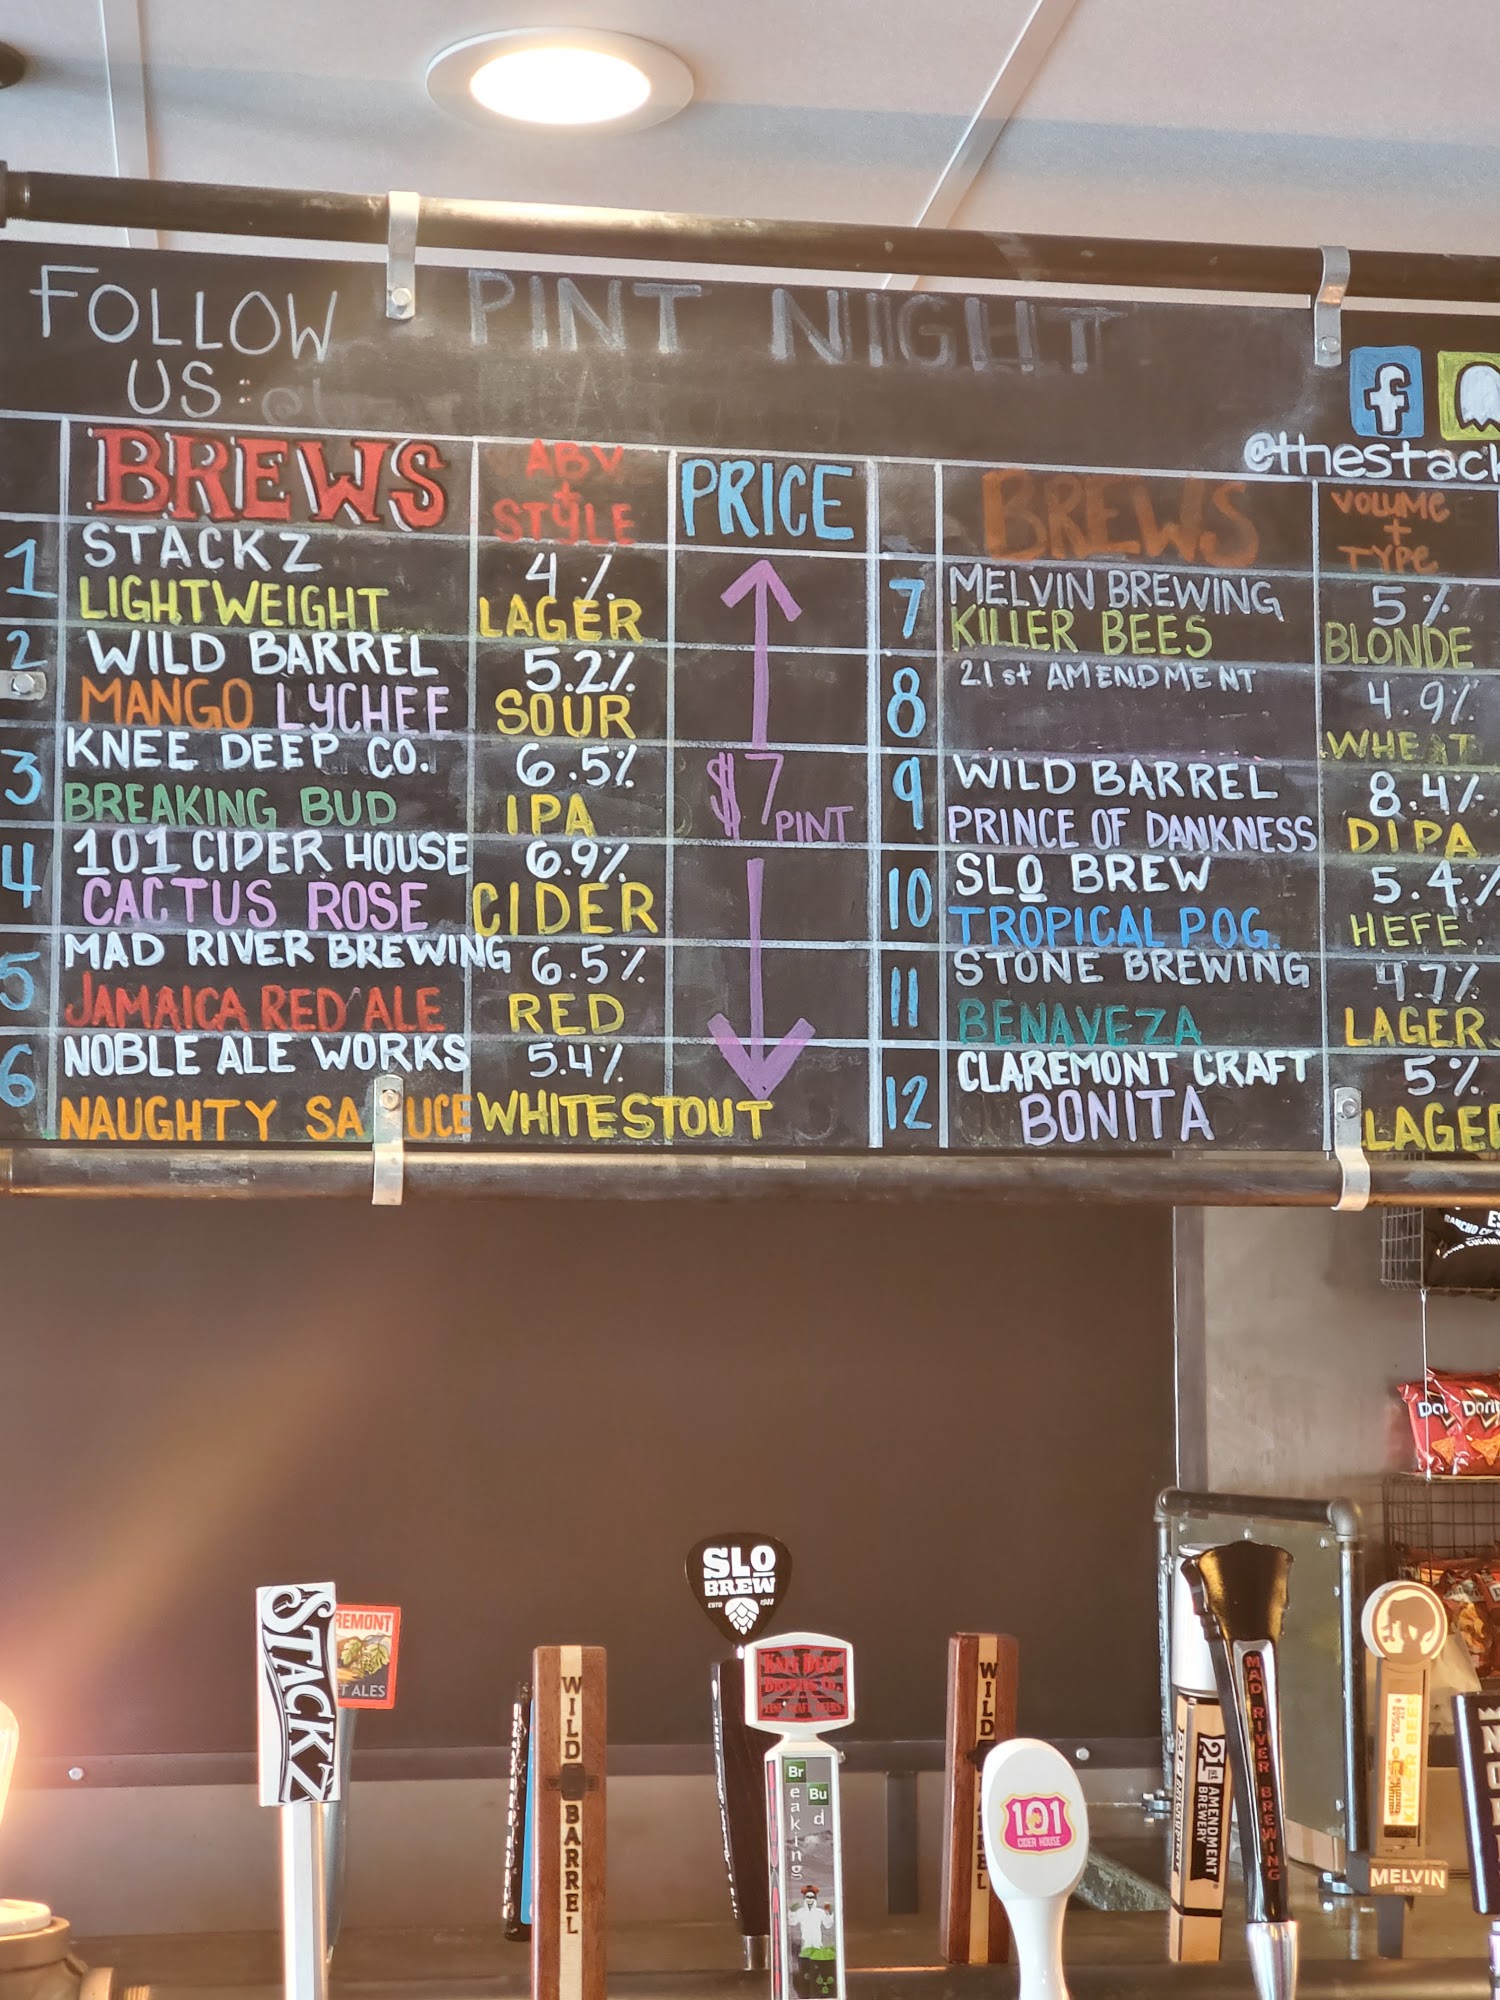 FOLLOW
US:
PINT NIGHT
@thestack
BREWS
ABV
+
STYLE
PRICE
1
STACKZ
LIGHTWEIGHT
4%
LAGER
2
WILD BARREL
MANGO LYCHEE
5.2%
SOUR
3
KNEE DEEP CO.
BREAKING BUD
6.5%
IPA
$7 PINT
4
101 CIDER HOUSE
CACTUS ROSE
6.9%
CIDER
5
MAD RIVER BREWING
JAMAICA RED ALE
6.5%
RED
6
NOBLE ALE WORKS
NAUGHTY SAUCE
5.4%
WHITE STOUT
BREWS
VOLUME
+
TYPE
7
MELVIN BREWING
KILLER BEES
5%
BLONDE
8
21st AMENDMENT
4.9%
WHEAT
9
WILD BARREL
PRINCE OF DANKNESS
8.4%
DIPA
10
SLO BREW
TROPICAL POG.
5.4%
HEFE.
11
STONE BREWING
BENAVEZA
4.7%
LAGER
12
CLAREMONT CRAFT
BONITA
5%
LAGER
Dori
Dorit
STACKZ
REMONT
FT ALES
WILD BARREL
SLO
BREW
ESTD 1988
KNEE DEEP
BREWING CO.
Breaking
Bud
WILD BARREL
101
CIDER HOUSE
21st
AMENDMENT
BREWERY
MAD RIVER BREWING
KILLER BEES
MELVIN
BREWING